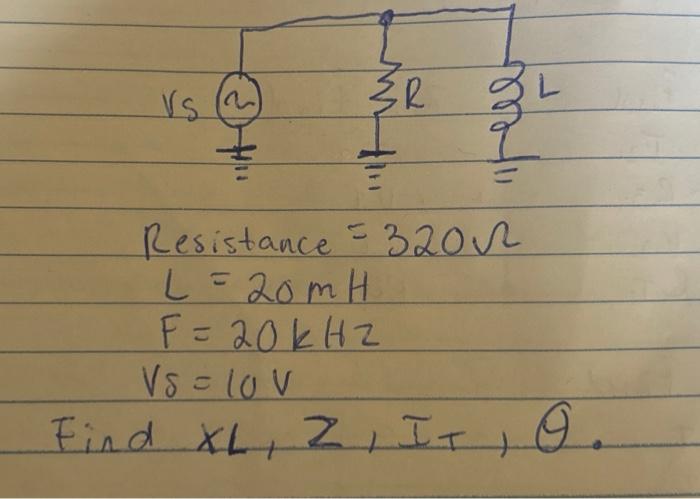 Vs R L
Resistance = 320Ω
L = 20mH
F = 20kHz
VS = 10V
Find XL, Z, IT, θ.